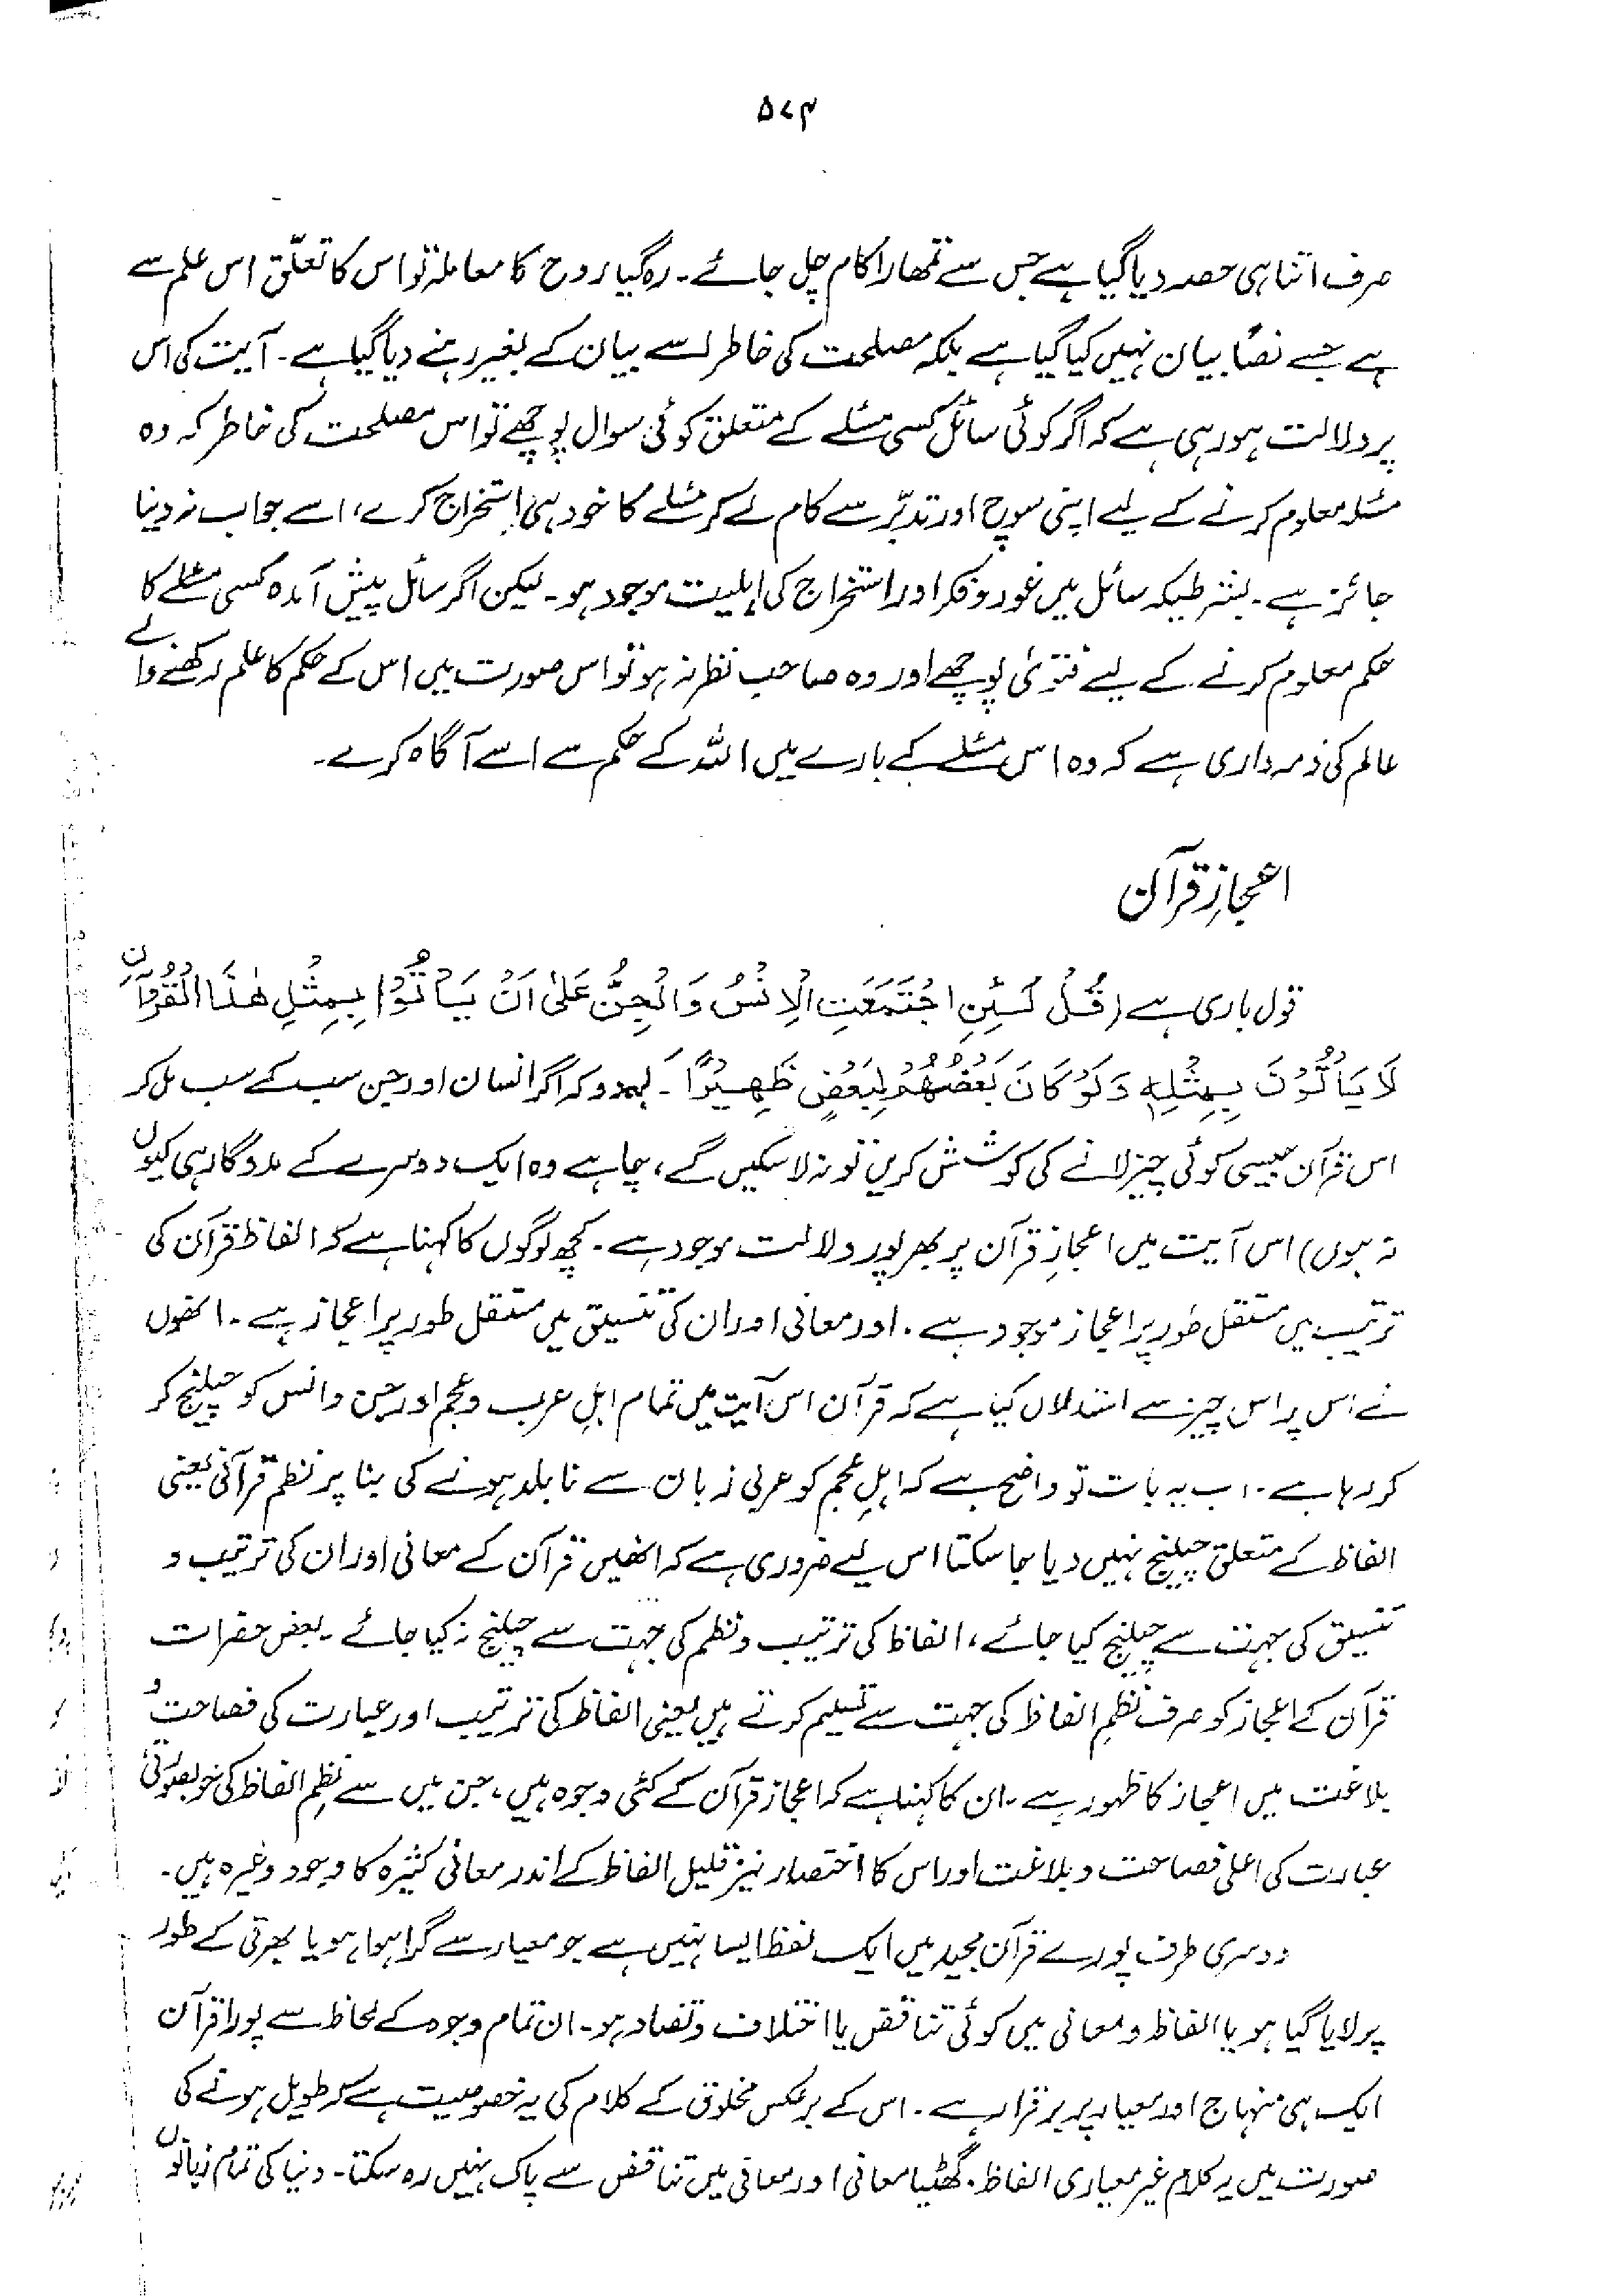 ۵۷۴
صرف اتنا ہی حصہ دیا گیا ہے جس سے تمہارا کام چل جائے۔ رہ گیا روح کا معاملہ تو اس کا تعلّق اس علم سے
ہے جسے نصًا بیان نہیں کیا گیا ہے بلکہ مصلحت کی خاطر اسے بیان کے بغیر رہنے دیا گیا ہے۔ آیت کی اس
پر دلالت ہو رہی ہے کہ اگر کوئی سائل کسی مسئلے کے متعلق کوئی سوال پوچھے تو اس مصلحت کی خاطر کہ وہ
مسئلہ معلوم کرنے کے لیے اپنی سوچ اور تدبّر سے کام لے کر مسئلے کا خود ہی استخراج کرے، اسے جواب نہ دینا
جائز ہے۔ بشرطیکہ سائل میں غور و فکر اور استخراج کی اہلیت موجود ہو۔ لیکن اگر سائل پیش آمدہ کسی مسئلے کا
حکم معلوم کرنے کے لیے فتویٰ پوچھے اور وہ صاحب نظر نہ ہو تو اس صورت میں اس کے حکم کا علم رکھنے والے
عالم کی ذمہ داری ہے کہ وہ اس مسئلے کے بارے میں اللہ کے حکم سے اسے آگاہ کرے۔
اعجازِ قرآن
قول باری ہے (قُلْ لَئِنِ اجْتَمَعَتِ الْاِنْسُ وَالْجِنُّ عَلٰی اَنْ یَّاْتُوْا بِمِثْلِ ھٰذَا الْقُرْاٰنِ
لَا یَاْتُوْنَ بِمِثْلِہٖ وَلَوْ کَانَ بَعْضُھُمْ لِبَعْضٍ ظَھِیْرًا۔ کہہ دو کہ اگر انسان اور جن سب کے سب مل کر
اس قرآن جیسی کوئی چیز لانے کی کوشش کریں تو نہ لا سکیں گے، چاہے وہ ایک دوسرے کے مددگار ہی کیوں
نہ ہوں) اس آیت میں اعجازِ قرآن پر بھرپور دلالت موجود ہے۔ کچھ لوگوں کا کہنا ہے کہ الفاظ قرآن کی
ترتیب میں مستقل طور پر اعجاز موجود ہے۔ اور معانی اور ان کی تنسیق میں مستقل طور پر اعجاز ہے۔ انھوں
نے اس پر اس چیز سے استدلال کیا ہے کہ قرآن اس آیت میں تمام اہلِ عرب و عجم اور جن و انس کو چیلنج کر
کر رہا ہے۔ اب یہ بات تو واضح ہے کہ اہلِ عجم کو عربی زبان سے نابلد ہونے کی بنا پر نظمِ قرآنی یعنی
الفاظ کے متعلق چیلنج نہیں دیا جا سکتا اس لیے ضروری ہے کہ انھیں قرآن کے معانی اور ان کی ترتیب و
تنسیق کی جہت سے چیلنج کیا جائے، الفاظ کی ترتیب و نظم کی جہت سے چیلنج نہ کیا جائے۔ بعض حضرات
قرآن کے اعجاز کو صرف نظمِ الفاظ کی جہت سے تسلیم کرتے ہیں یعنی الفاظ کی ترتیب اور عبارت کی فصاحت و
بلاغت میں اعجاز کا ظہور ہے۔ ان کا کہنا ہے کہ اعجاز قرآن کے کئی وجوہ ہیں، جن میں سے نظمِ الفاظ کی خوبصورتی
عبارت کی اعلیٰ فصاحت و بلاغت اور اس کا اختصار نیز قلیل الفاظ کے اندر معانی کثیرہ کا وجود وغیرہ ہیں۔
دوسری طرف پورے قرآن مجید میں ایک لفظ ایسا نہیں ہے جو معیار سے گرا ہوا ہو یا بھرتی کے طور
پر لایا گیا ہو یا الفاظ و معانی میں کوئی تناقض یا اختلاف و تضاد ہو۔ ان تمام وجوہ کے لحاظ سے پورا قرآن
ایک ہی منہاج اور معیار پر برقرار ہے۔ اس کے برعکس مخلوق کے کلام کی یہ خصوصیت ہے کہ طویل ہونے کی
صورت میں یہ کلام غیر معیاری الفاظ۔ گھٹیا معانی اور معانی میں تناقض سے پاک نہیں رہ سکتا۔ دنیا کی تمام زبانوں